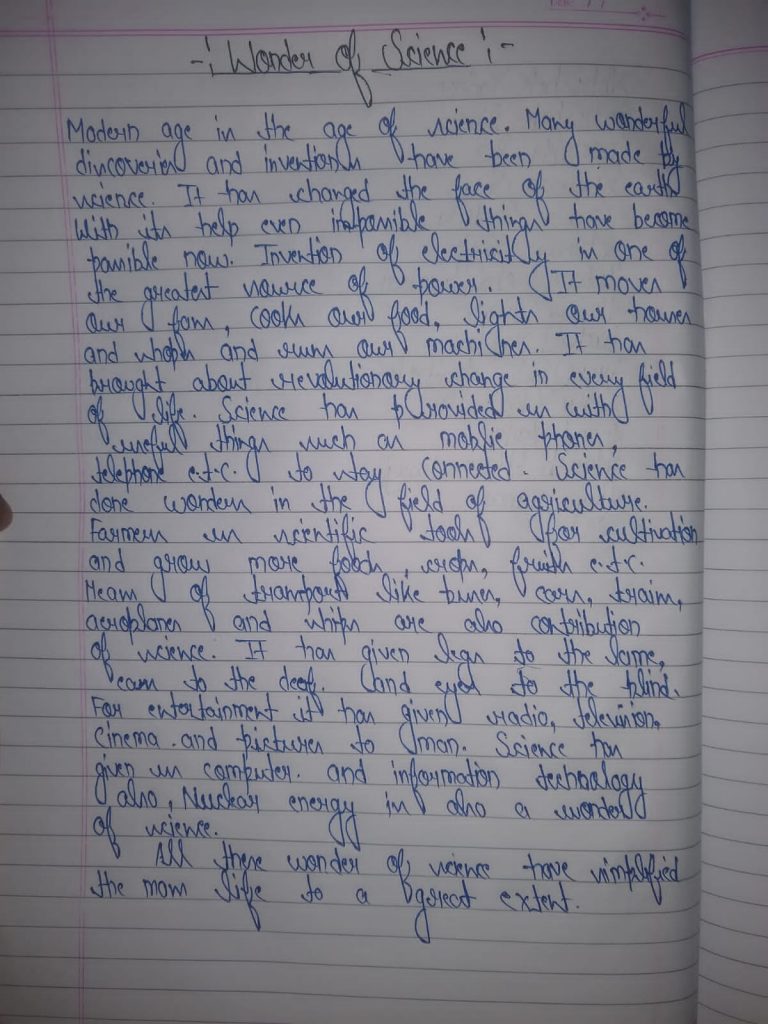 -: Wonder of Science :-
Modern age is the age of science. Many wonderful
discoveries and inventions have been made by
science. It has changed the face of the earth
With its help even impossible things have become
possible now. Invention of electricity is one of
the greatest source of power. It moves
our fans, cooks our food, lights our houses
and shops and runs our machines. It has
brought about revolutionary change in every field
of life. Science has provided us with
useful things such as moblie phones,
telephone e.t.c. to stay connected. Science has
done wonders in the field of agriculture.
Farmers us scientific tools for cultivation
and grow more foods, crops, fruits e.t.c.
Means of transports like buses, cars, trains,
aeroplanes and ships are also contribution
of science. It has given legs to the lame,
ears to the deaf. and eyes to the blind.
For entertainment it has given radio, television,
cinema. and pictures to man. Science has
given us computer. and information technology
also, Nuclear energy is also a wonder
of science.
All these wonder of science have simplified
the man life to a great extent.